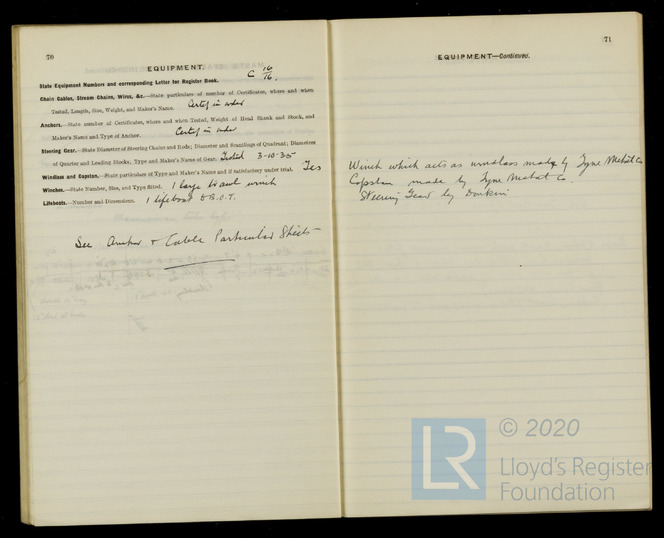 70
EQUIPMENT.
State Equipment Numbers and corresponding Letter for Register Book. C 16/16.
Chain Cables, Stream Chains, Wires, &c.—State particulars of number of Certificates, where and when
Tested, Length, Size, Weight, and Maker's Name. Certif in order
Anchors.—State number of Certificates, where and when Tested, Weight of Head Shank and Stock, and
Maker's Name and Type of Anchor. Certif in order
Steering Gear.—State Diameter of Steering Chains and Rods; Diameter and Scantlings of Quadrant; Diameters
of Quarter and Leading Blocks; Type and Maker's Name of Gear. Tested 3-10-35
Windlass and Capstan.—State particulars of Type and Maker's Name and if satisfactory under trial. Yes
Winches.—State Number, Size, and Type fitted. 1 large trawl winch
Lifeboats.—Number and Dimensions. 1 lifeboat B.O.T.
See Anchor & Cable Particular Sheets
71
EQUIPMENT—Continued.
Winch which acts as windlass made by Tyne Mechst Co
Capstan made by Tyne Mechst Co.
Steering Gear by Donkin
LR
© 2020
Lloyd's Register
Foundation